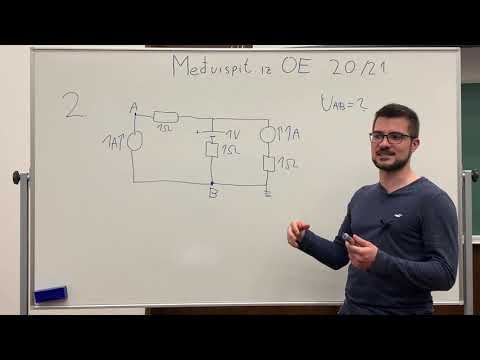 Međuispit iz OE 20/21
2
A
1Ω
1A↑
+ 1V
1Ω
↑1A
1Ω
B
U_AB = ?